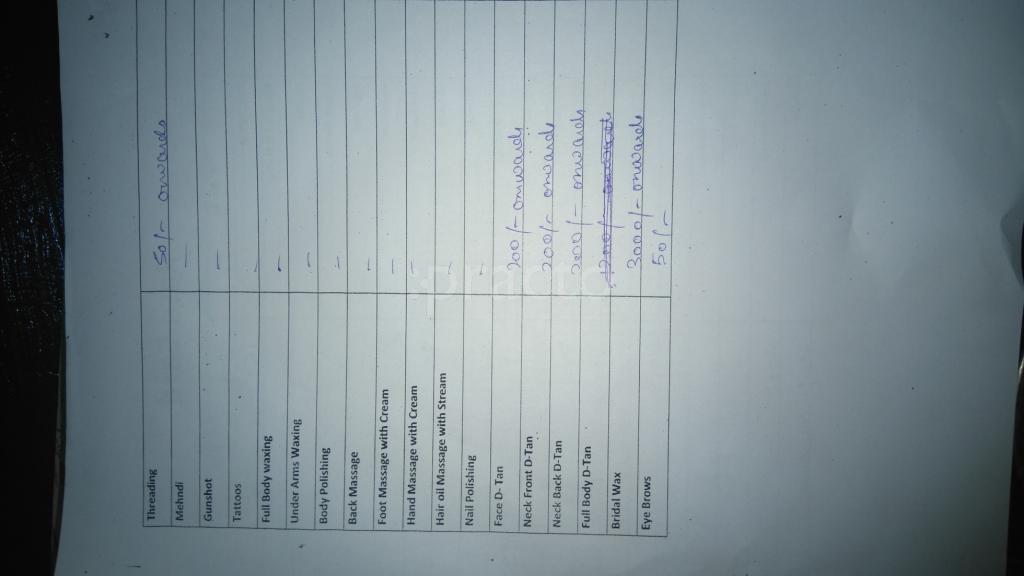 Threading 50/- onwards
Mehndi —
Gunshot —
Tattoos -
Full Body waxing -
Under Arms Waxing -
Body Polishing -
Back Massage -
Foot Massage with Cream -
Hand Massage with Cream -
Hair oil Massage with Stream -
Nail Polishing -
Face D- Tan 200/- onwards
Neck Front D-Tan 200/- onwards
Neck Back D-Tan 2000/- onwards
Full Body D-Tan
Bridal Wax 3000/- onwards
Eye Brows 50/-
practo